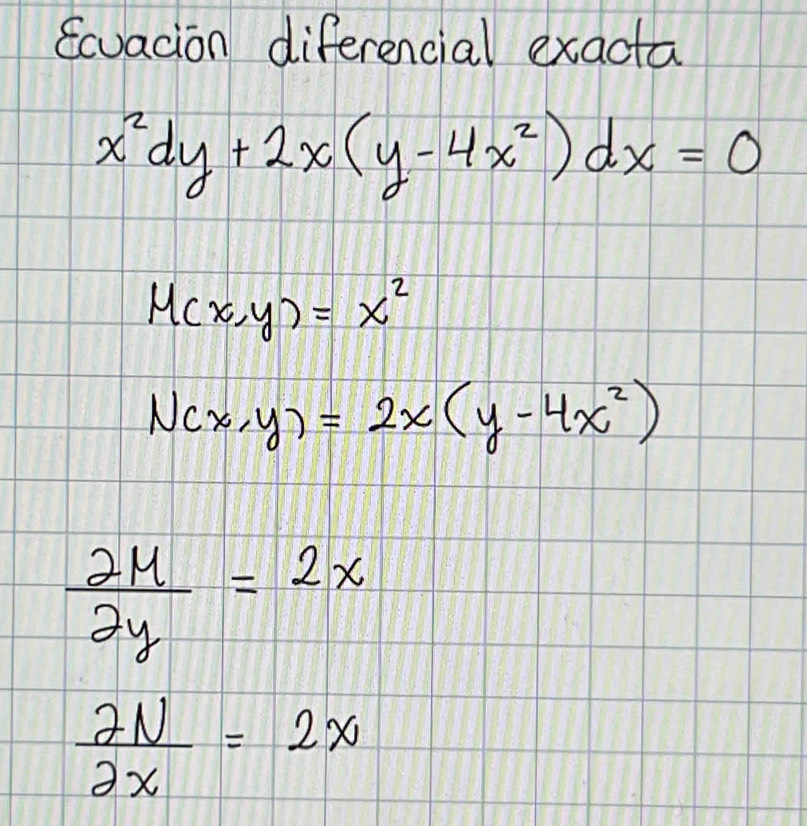 Ecuación diferencial exacta
x²dy + 2x(y - 4x²)dx = 0
M(x,y) = x²
N(x,y) = 2x(y - 4x²)
∂M/∂y = 2x
∂N/∂x = 2x